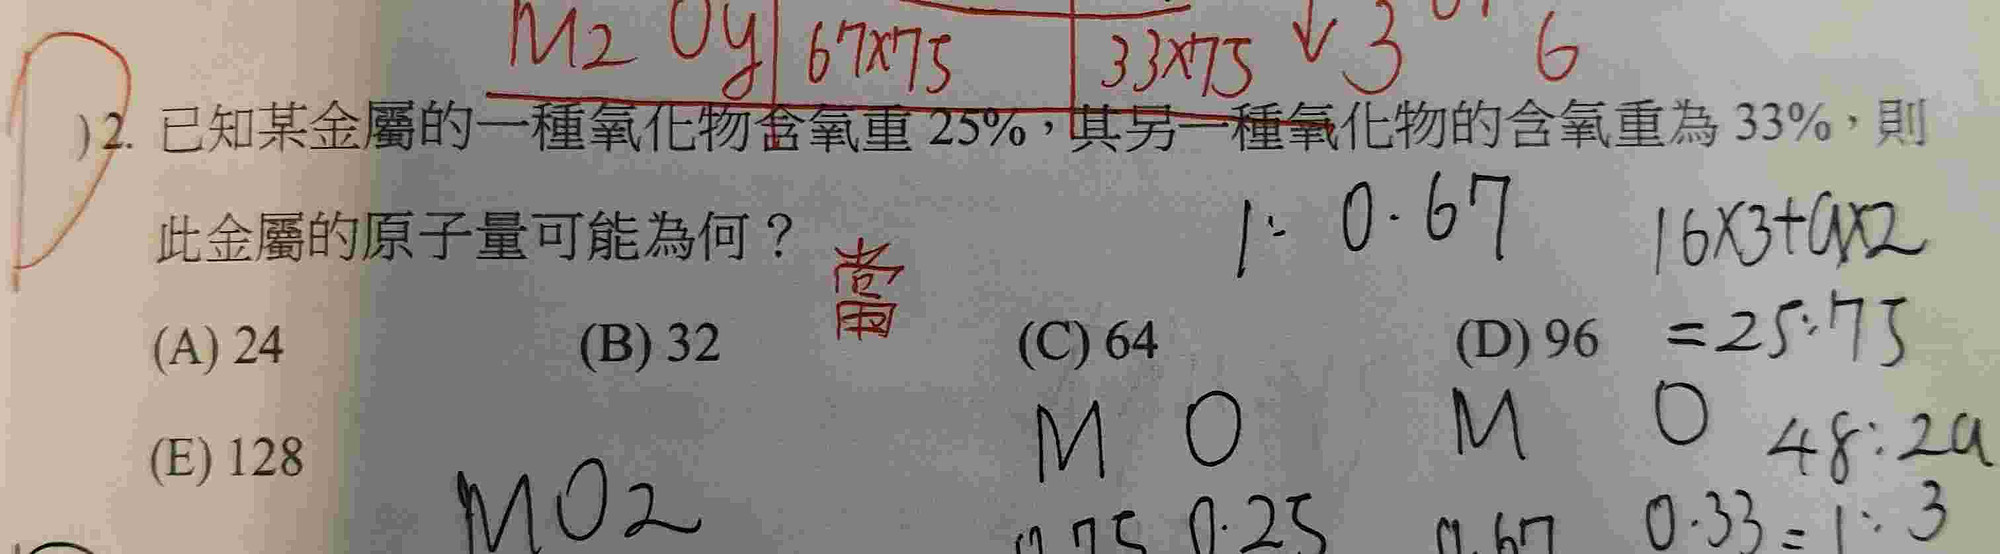 M2 Oy 67×75 33×75 ↓ 3 6
)2. 已知某金屬的一種氧化物含氧重 25%，其另一種氧化物的含氧重為 33%，則
1: 0.67
此金屬的原子量可能為何？
16×3+a×2
(A) 24 (B) 32 (C) 64 (D) 96
=25:75
M O M O
48:2a
(E) 128
MO2
0.75 0.25 0.67 0.33
=1:3